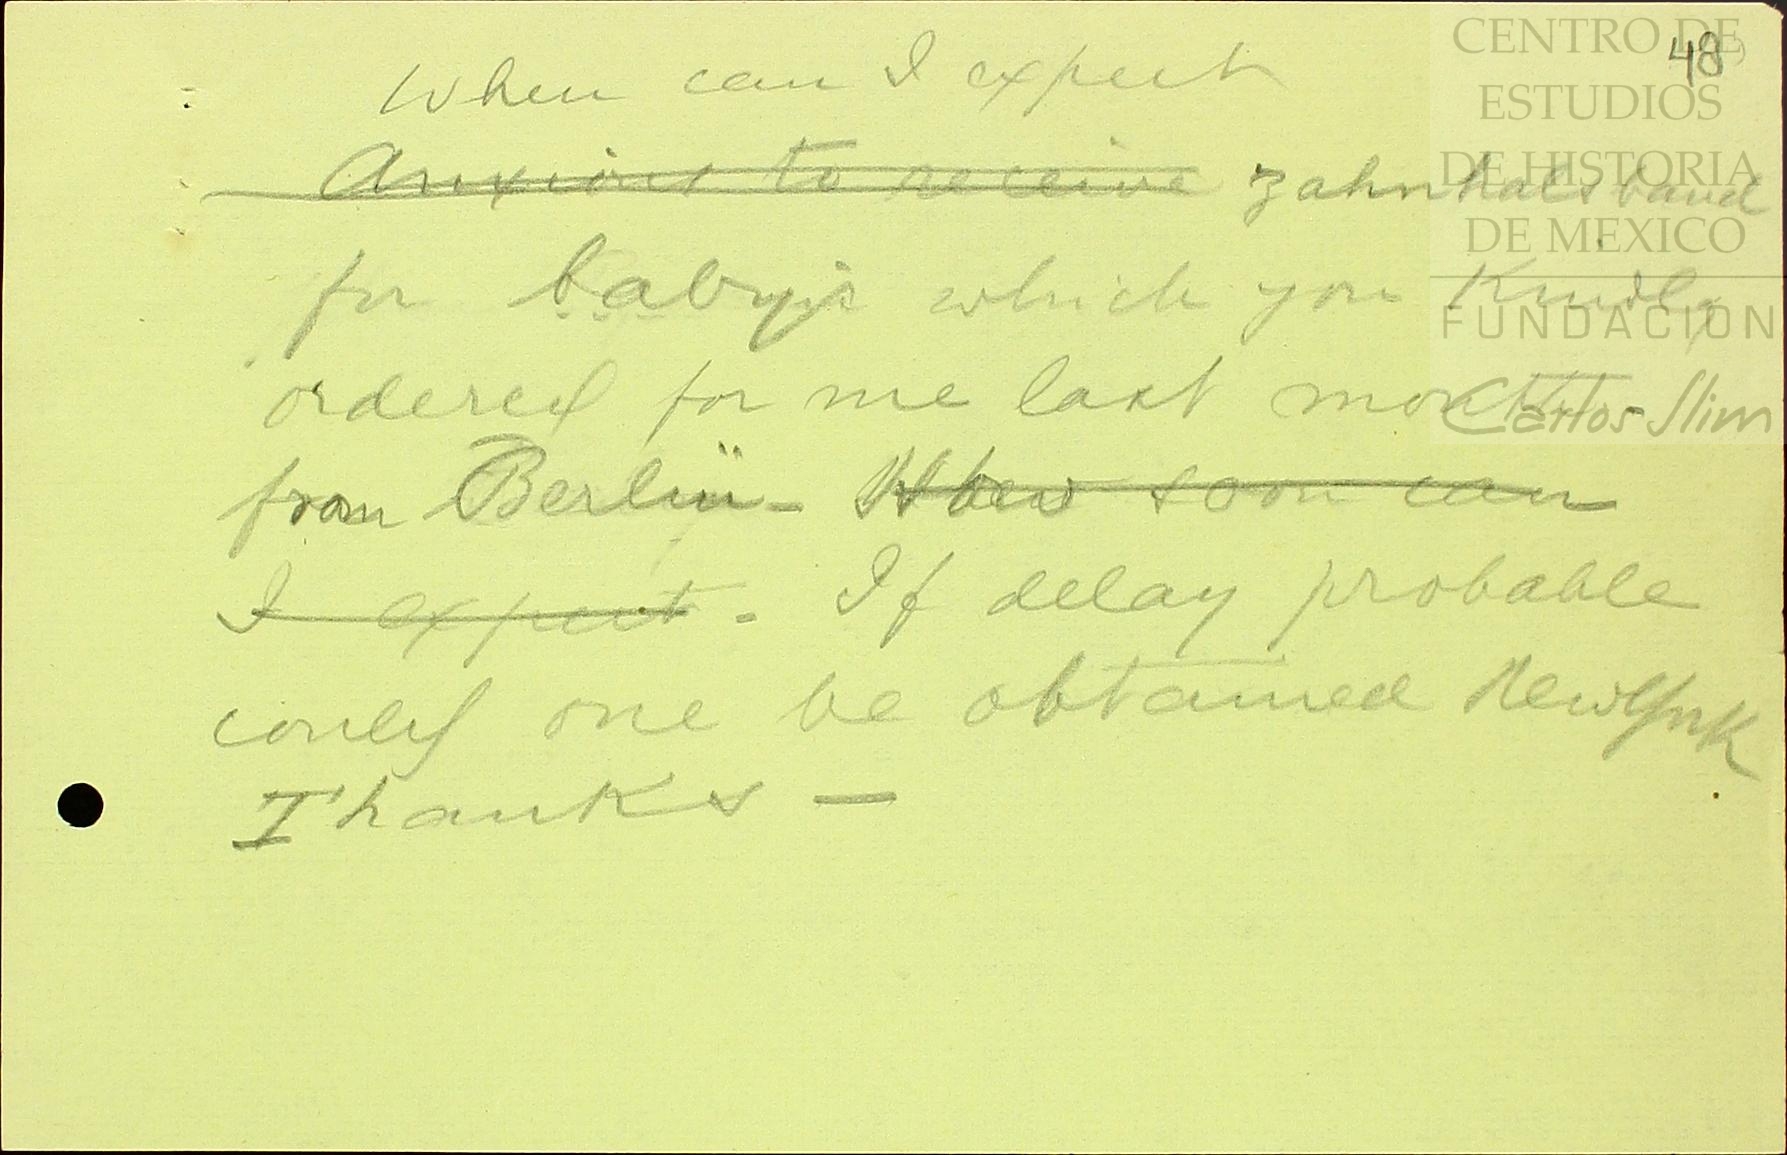 48
When can I expect
Anxious to receive Zahnhalsband
for baby's which you Kindly
ordered for me last month
from Berlin - How soon can
I expect. If delay probable
could one be obtained New York
Thanks —
CENTRO DE
ESTUDIOS
DE HISTORIA
DE MEXICO
FUNDACION
Carlos Slim